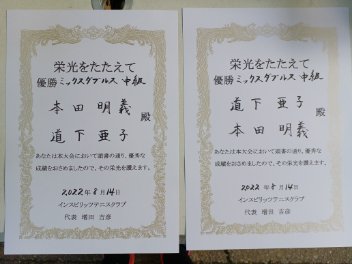 栄光をたたえて
優勝ミックスダブルス 中級
本田明義 殿
道下亜子
あなたは本大会において頭書の通り、優秀な
成績をおさめましたので、その栄光を讃えます。
2022年8月14日
インスピリッツテニスクラブ
代表 増田 吉彦
栄光をたたえて
優勝ミックスダブルス 中級
道下亜子 殿
本田明義
あなたは本大会において頭書の通り、優秀な
成績をおさめましたので、その栄光を讃えます。
2022年8月14日
インスピリッツテニスクラブ
代表 増田 吉彦